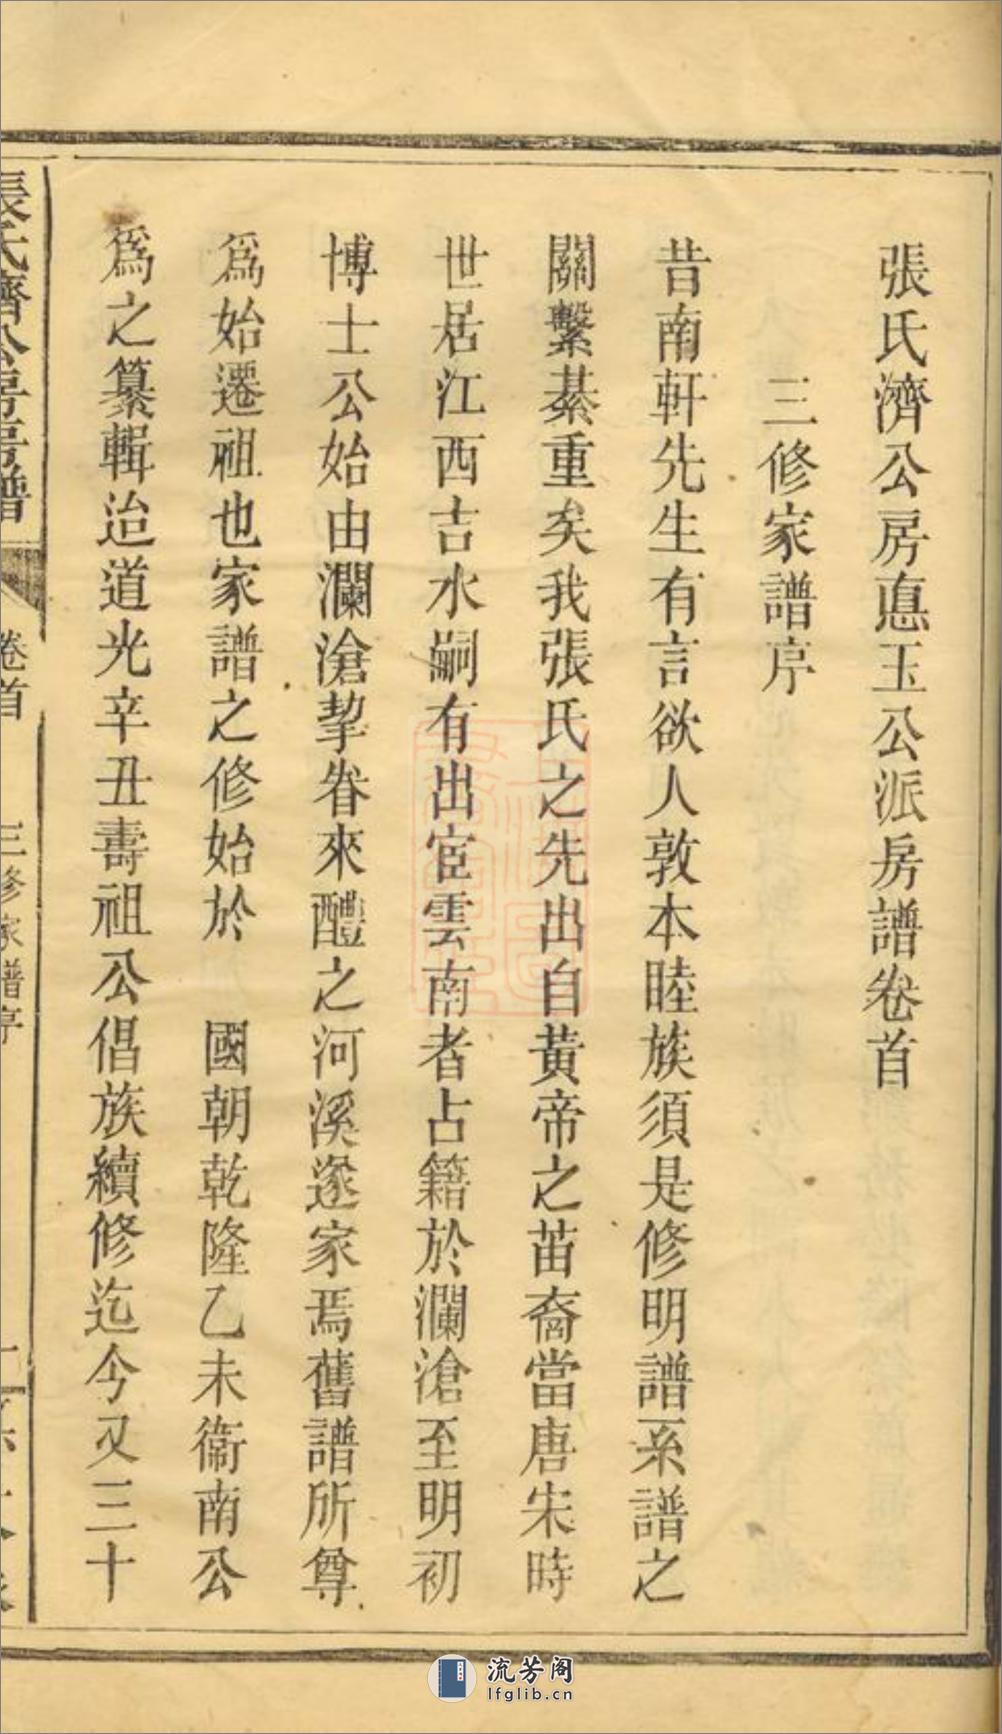 張氏濟公房惪玉公派房譜卷首
三修家譜序
昔南軒先生有言欲人敦本睦族須是修明譜系譜之
關繫綦重矣我張氏之先出自黃帝之苗裔當唐宋時
世居江西吉水嗣有出宦雲南者占籍於瀾滄至明初
博士公始由瀾滄挈眷來醴之河溪遂家焉舊譜所尊
爲始遷祖也家譜之修始於 國朝乾隆乙未衞南公
爲之纂輯迨道光辛丑壽祖公倡族續修迄今又三十
張氏濟公房房譜 卷首 三修家譜序
流芳阁
lfglib.cn